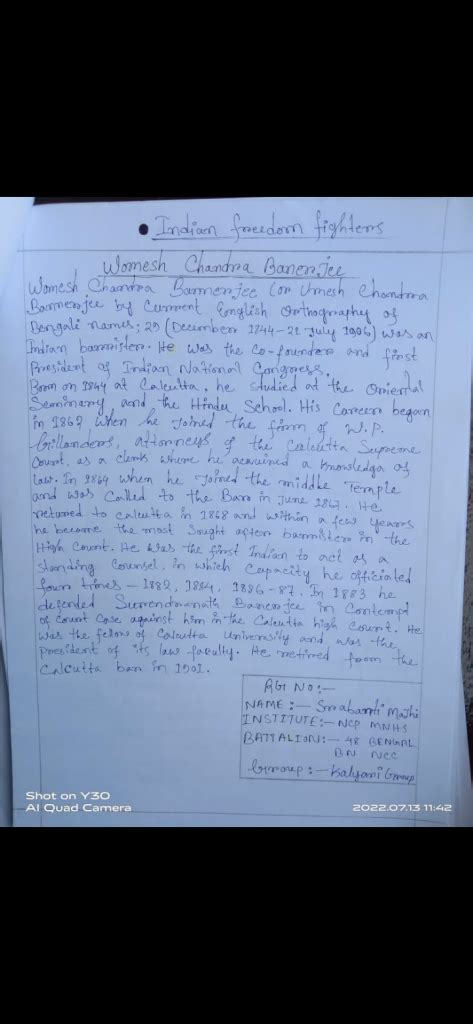 • Indian freedom fighters
Womesh Chandra Banerjee
Womesh Chandra Bannerjee (or Umesh Chandra
Bannerjee by Current English Orthography of
Bengali names; 29 (December 1844-21 July 1906) was an
Indian barrister. He was the Co-founder and first
President of Indian National Congress.
Born on 1844 at Calcutta, he studied at the Oriental
Seminary and the Hindu School. His Career began
in 1862 when he Joined the firm of W.P.
Gillanders, attorneys of the Calcutta Supreme
Court, as a clerk where he acquired a knowledge of
law. In 1864 when he Joined the middle Temple
and was Called to the Bar in June 1867. He
retured to calcutta in 1868 and within a few years
he became the most Sought after barrister in the
High Court. He was the first Indian to act as a
Standing Counsel, in which Capacity he officiated
four times - 1882, 1884, 1886-87. In 1883 he
defended Surendranath Banerjee in Contempt
of Court Case against him in the Calcutta high Court. He
was the fellow of Calcutta University and was the
president of its law faculty. He retired from the
Calcutta bar in 1901.
RGT NO:-
NAME :- Srabanti Majhi
INSTITUTE:- NCP MNHS
BATTALION:- 48 BENGAL
BN NCC
Group :- Kalyani Group
Shot on Y30
AI Quad Camera
2022.07.13 11:42